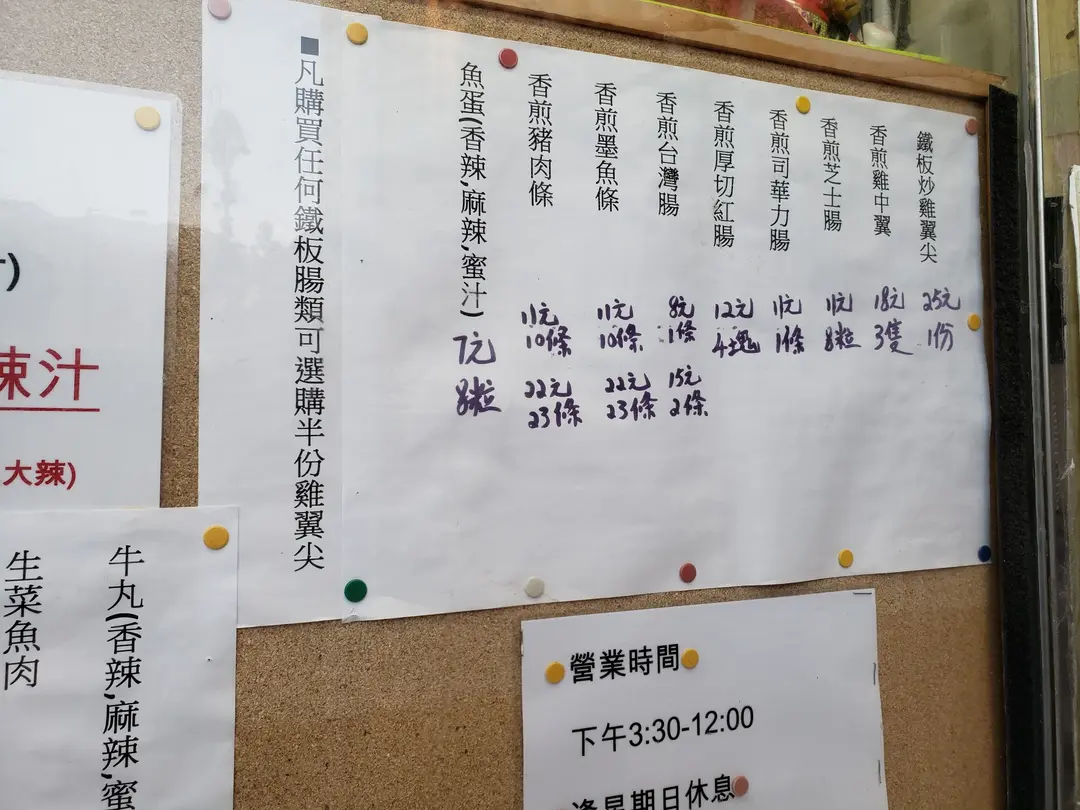 鐵板炒雞翼尖
25元
1份
香煎雞中翼
18元
3隻
香煎芝士腸
11元
8粒
香煎司華力腸
11元
1條
香煎厚切紅腸
12元
4塊
香煎台灣腸
8元
1條
15元
2條
香煎墨魚條
11元
10條
22元
23條
香煎豬肉條
11元
10條
22元
23條
魚蛋(香辣,麻辣,蜜汁)
7元
8粒
■凡購買任何鐵板腸類可選購半份雞翼尖
辣汁
大辣)
牛丸(香辣,麻辣,蜜
生菜魚肉
營業時間
下午3:30-12:00
逢星期日休息